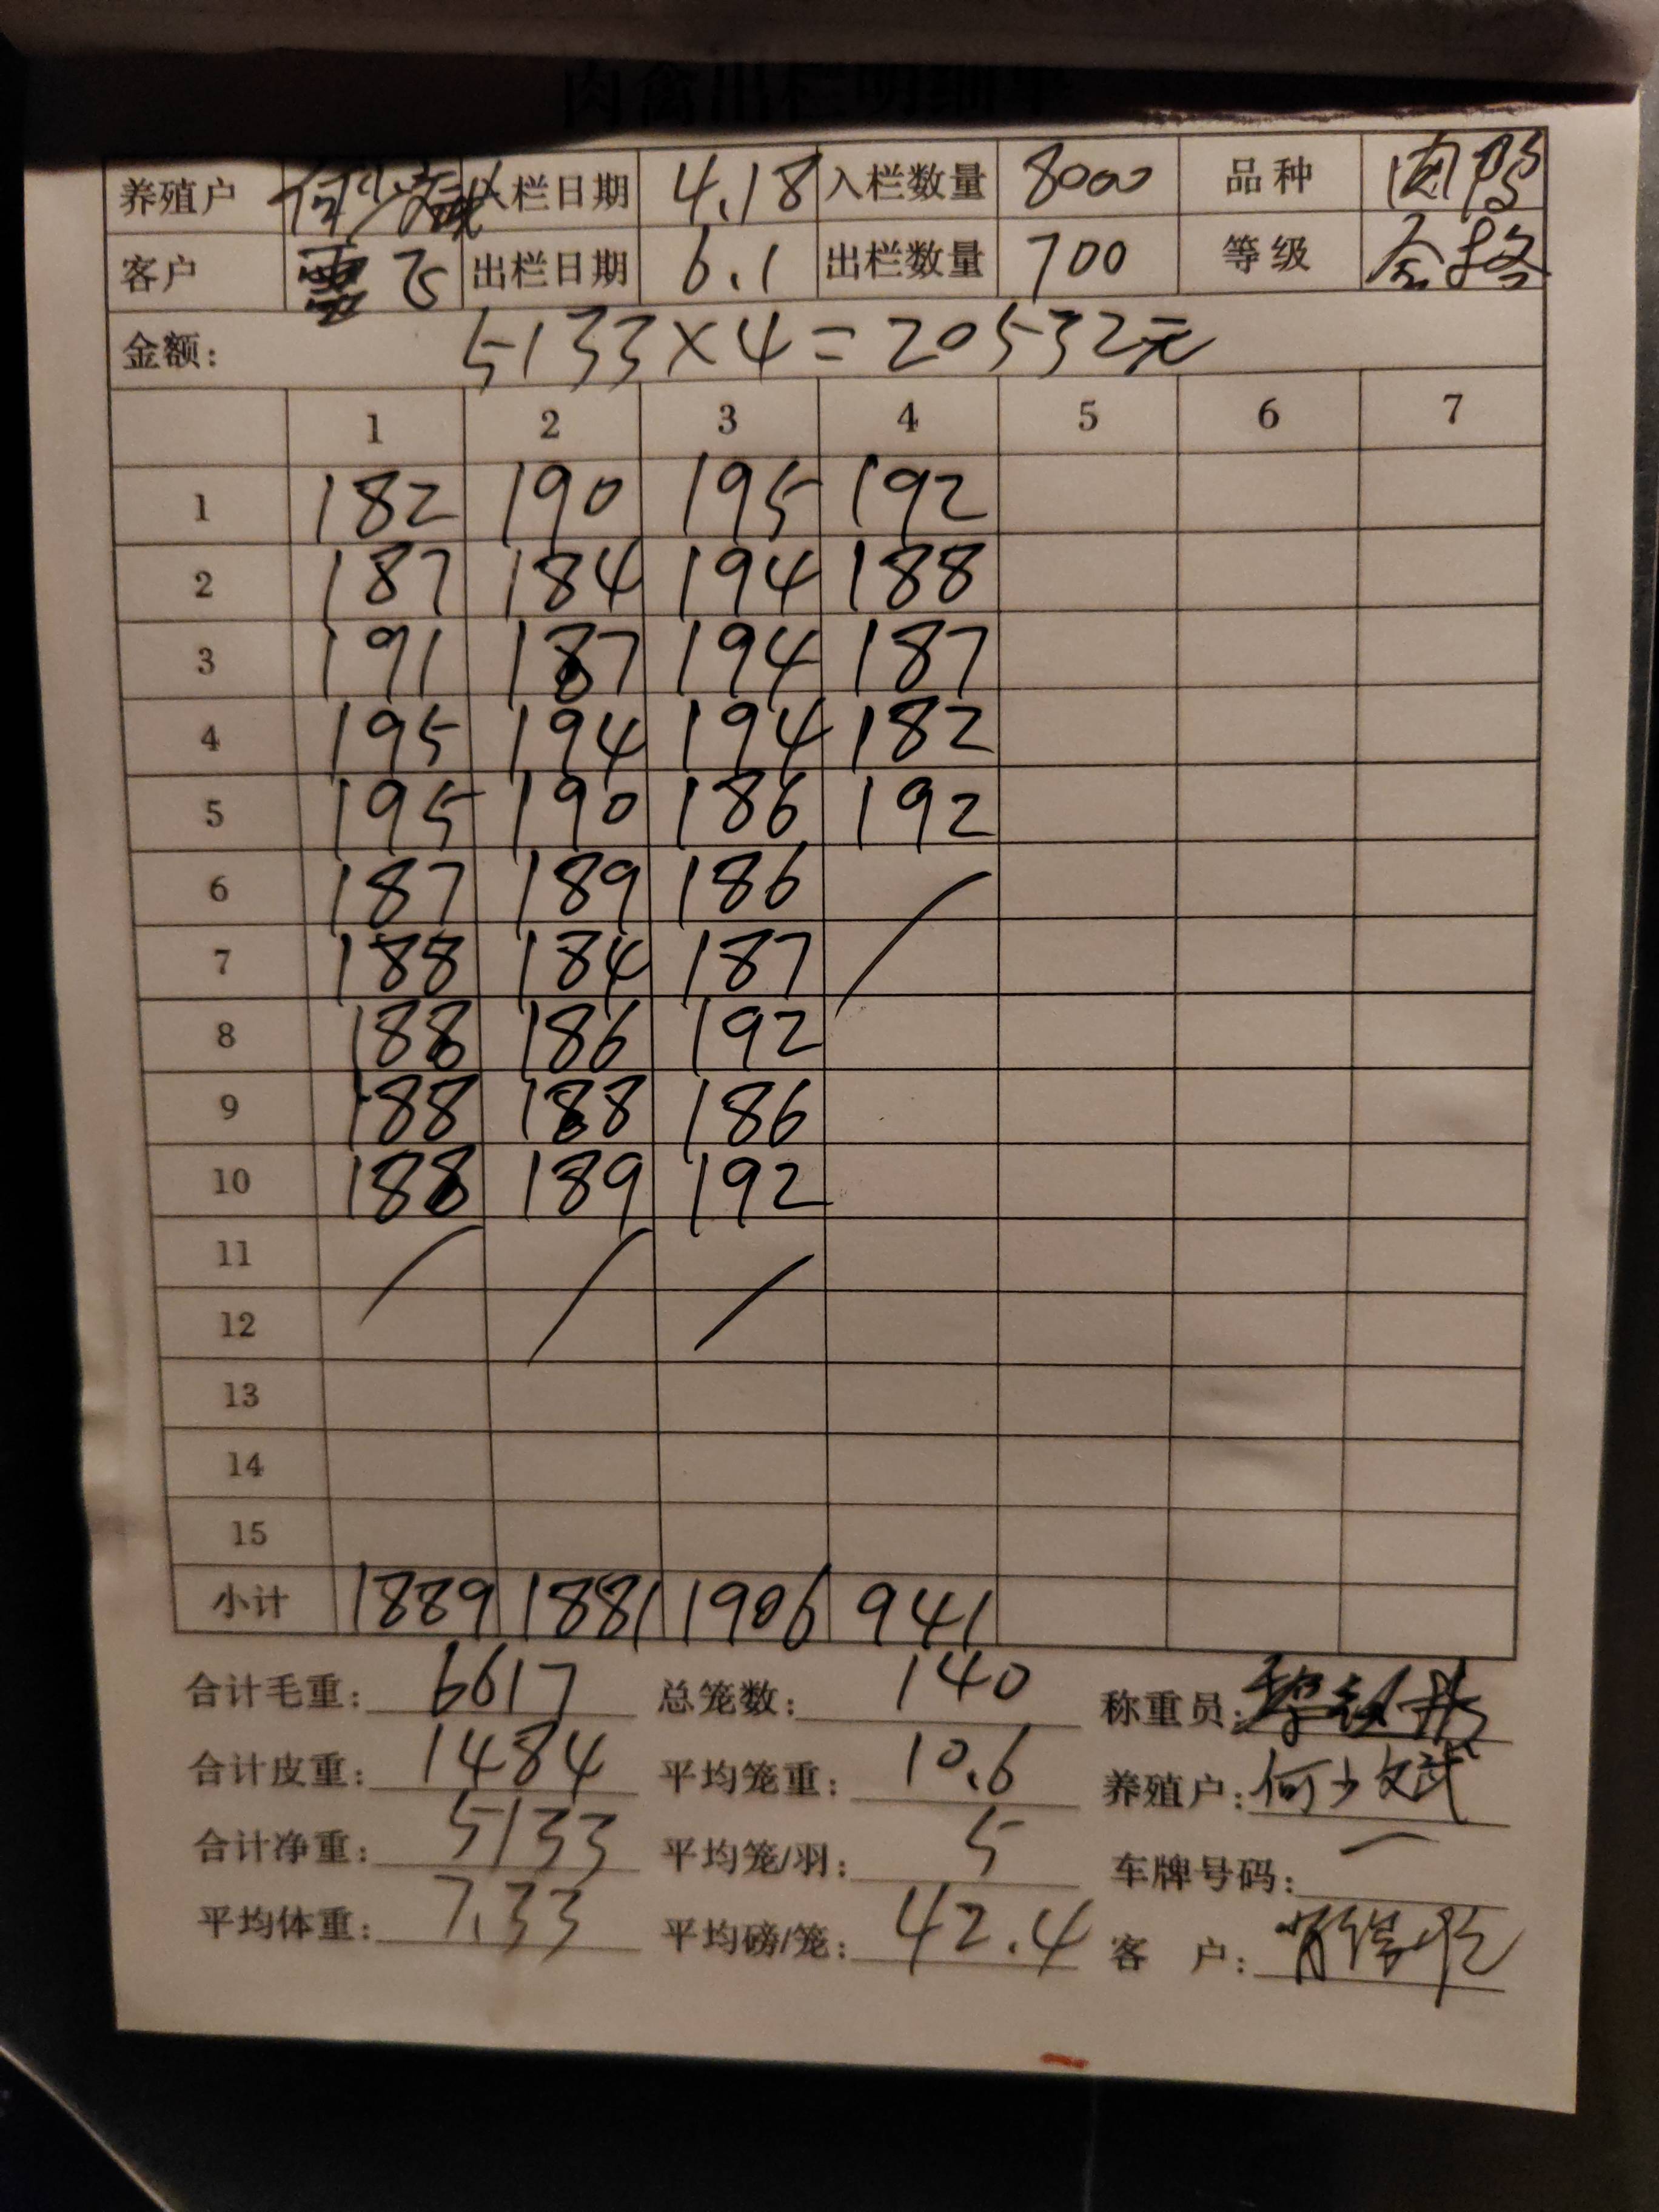 肉禽出栏明细单
养殖户 入栏日期 4.18 入栏数量 8000 品种 肉鸭
客户 飞 出栏日期 6.1 出栏数量 700 等级 合格
金额: 5133×4=20532元
1 2 3 4 5 6 7
1 182 190 195 192
2 187 184 194 188
3 191 187 194 187
4 195 194 194 182
5 195 190 186 192
6 187 189 186
7 188 184 187
8 188 186 192
9 188 188 186
10 188 189 192
11
12
13
14
15
小计 1889 1881 1906 941
合计毛重: 6617 总笼数: 140 称重员:
合计皮重: 1484 平均笼重: 10.6 养殖户: 何少斌
合计净重: 5133 平均笼/羽: 5 车牌号码: 一
平均体重: 7.33 平均磅/笼: 42.4 客 户: